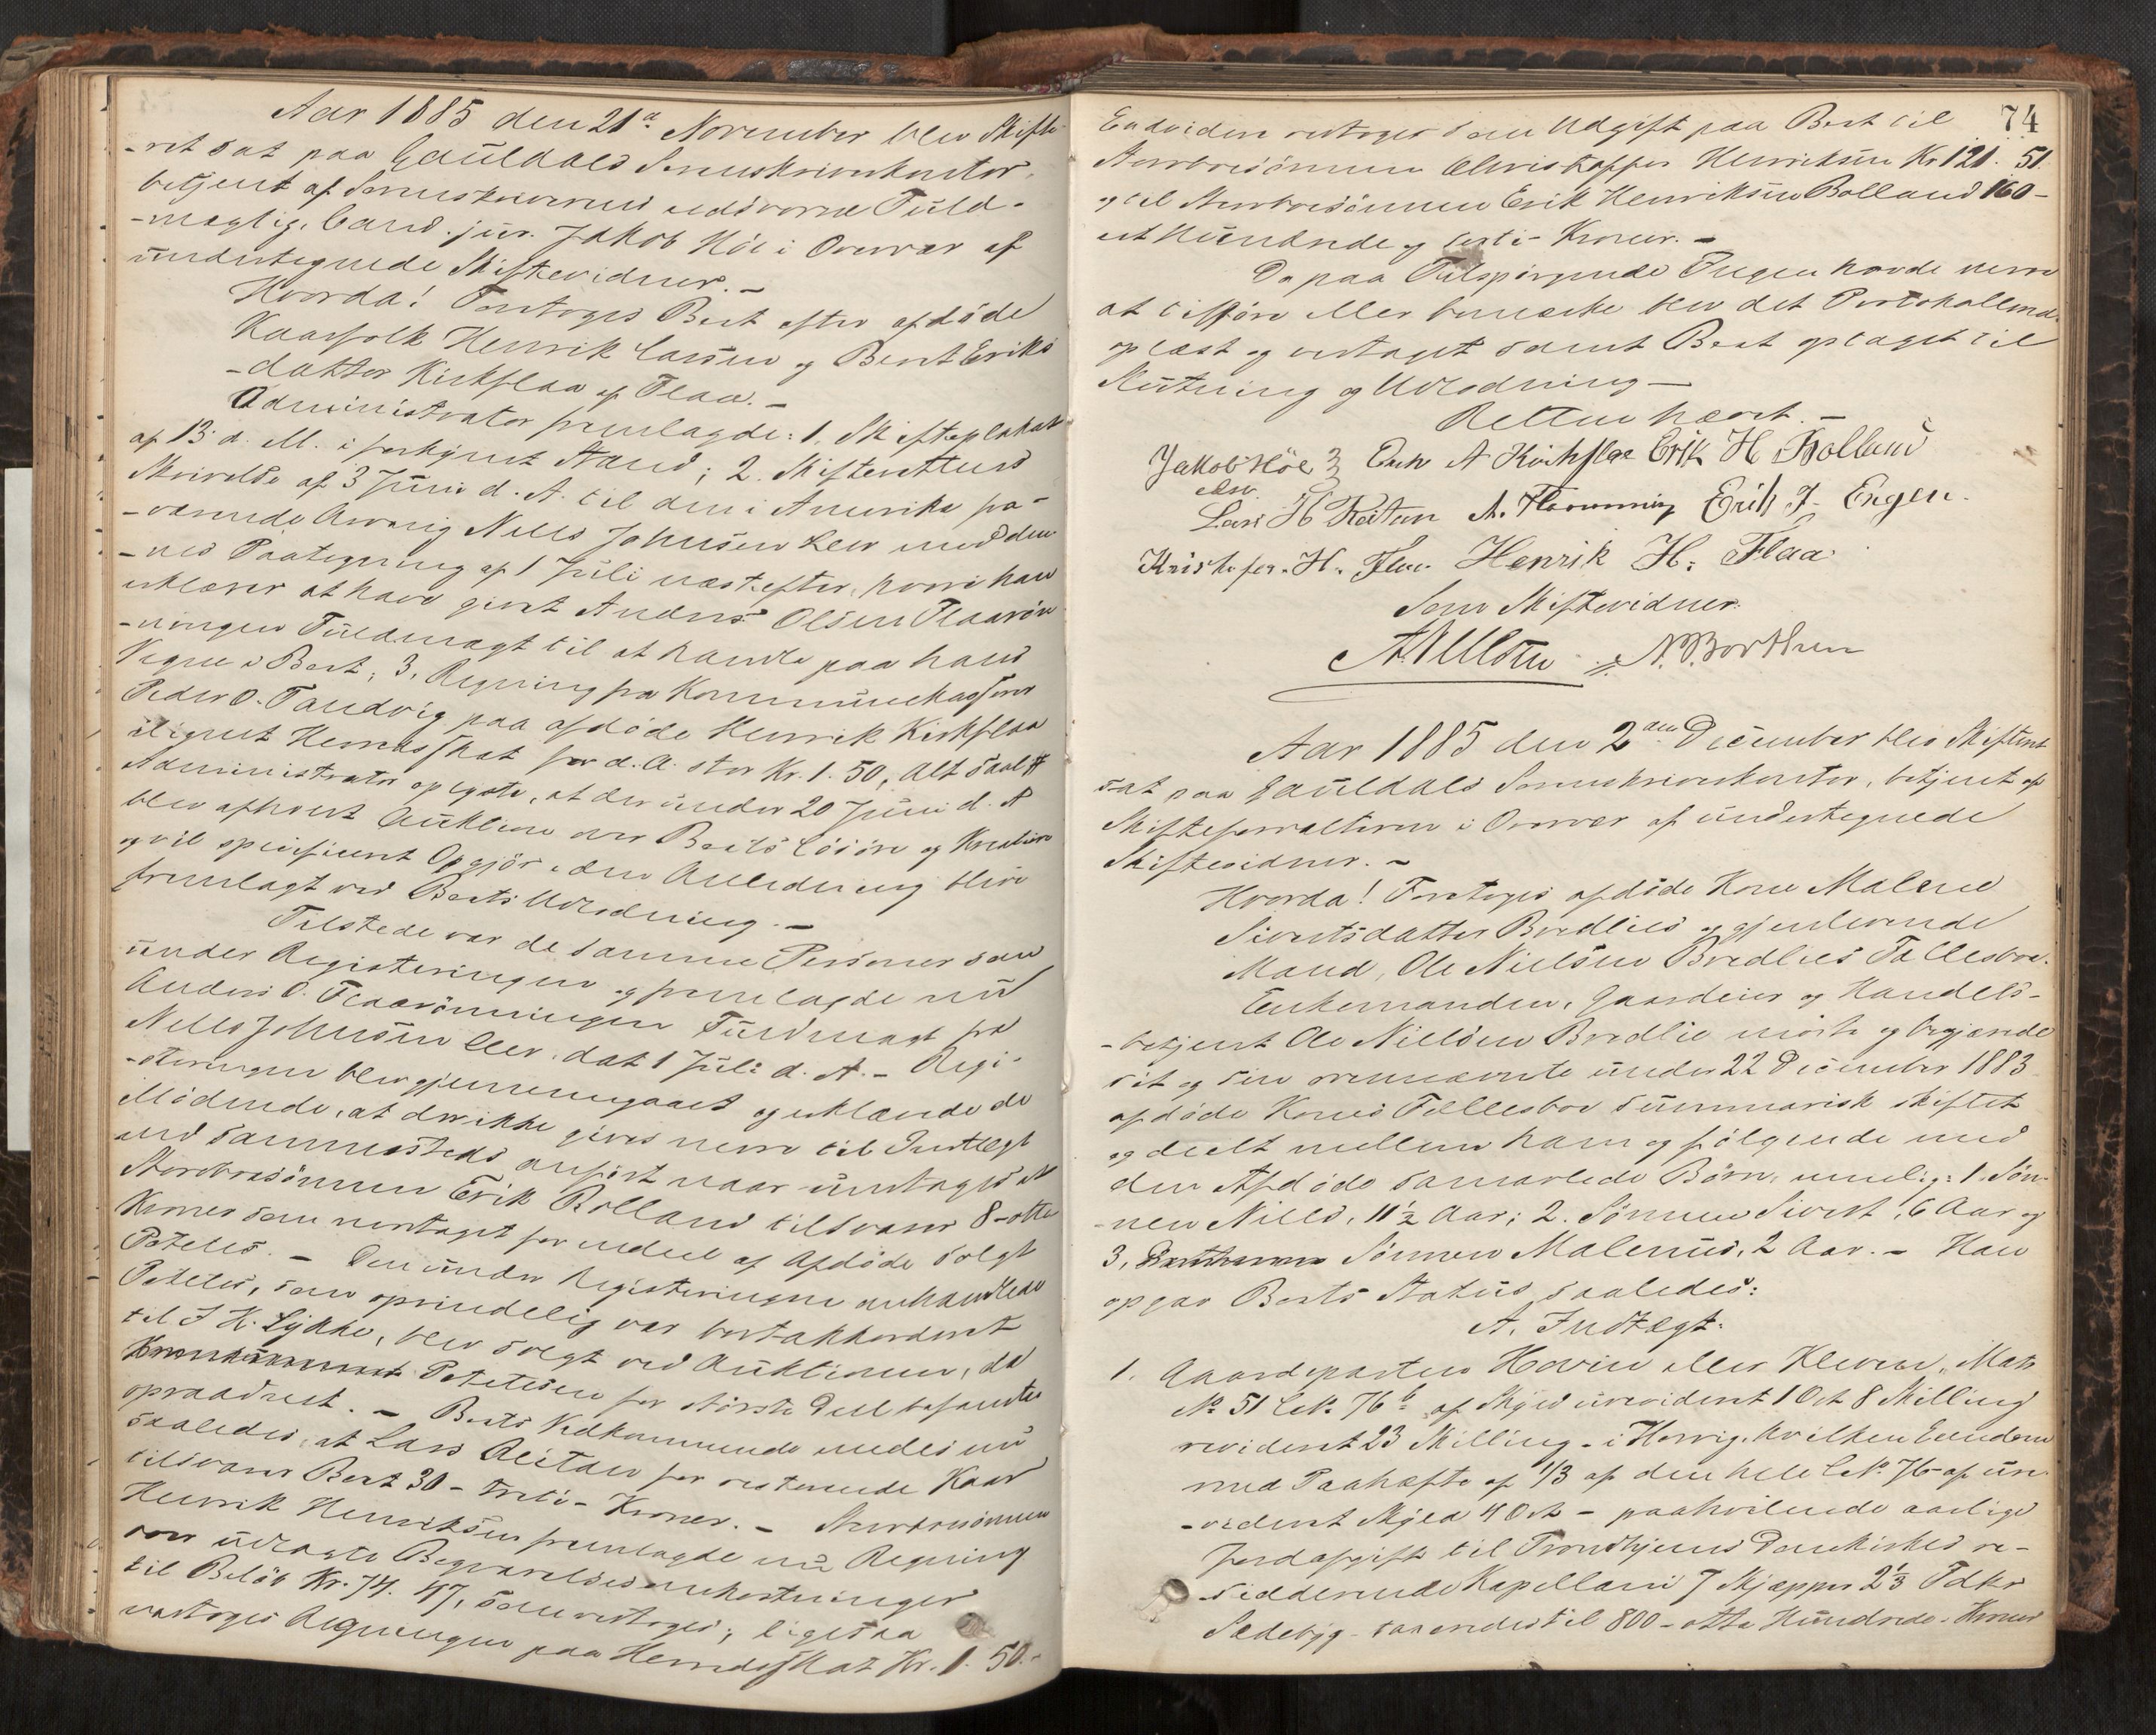 Aar 1885 den 21d November blev Skifte-
-ret sat paa Gauldals Sorenskriverkontor,
betjent af Sorenskriverens edsvorne Fuld-
-mægtig, Cand. jur. Jakob Höe i Overvær af
undertegnede Skiftevidner. -
Hvorda! Foretoges Boet efter afdöde
Kaarfolk Henrik Larsen og Berit Eriks
-datter Kirkflaa af Flaa. -
Administrator fremlagde: 1. Skifteplakat
af 13 d. M. i forkyndt Stand; 2. Skifterettens
Skrivelse af 3 Juni d. A. til den i Amerika fra-
-værende Arving Niels Johnsen Leer med den-
-nes Paategning af 1 Juli næstefter, hvori han
erklærer at have givet Anders Olsen Flaarön-
-ningen Fuldmagt til at handle paa hans
Vegne i Boet; 3. Regning fra Kommunekasserer
Peder O. Tandvig paa afdöde Henrik Kirkflaa
ilignet Herredsskat for d. A. stor Kr. 1.50, alt saal #
Administrator oplyste, at der under 20 Juni d. A
blev afholdt Auktion over Boets Lösöre og Kreature
og vil specificeret Opgjör i den Anledning blive
fremlagt ved Boets Udlodning. -
Tilstede var de samme Personer som
under Registeringen og fremlagde nu
Anders O. Flaarönningen Fuldmagt fra
Niels Johnsen Leer, dat 1 Juli d. A. - Regi-
-steringen blev gjennemgaaet og erklærede de
Mödende, at der ikke gives mere til Indtægt
end sammesteds anfört naar undtages at
Stervbosönnen Erik Rolland tilsvarer 8 - otte
Kroner som modtaget for endeel af Afdöde solgt
Poteter. - De under Registeringen omhandlede
Poteter, som oprindelig var bortakkorderet
til J H. Lykke, blev solgt ved Auktionen, da
Poteterne for störste Deel befandtes
opraadnet. - Boets Vedkommende enedes nu
saaledes, at Lars Reitan for resterende Kaar
tilsvarer Boet 30 - treti - Kroner. - Stervbosönnen
Henrik Henriksen fremlagde nu Regning
over udlagte Begravelsesomkostninger
til Belöb Kr. 74. 47, som vedtoges; ligesaa
vedtoges Regningen paa Herredsskat Kr. 1. 50.-
74
Endvidere vedtoges som Udgift paa Boet til
Stervbosönnen Christopher Henriksen Kr 121. 51.
og til Stervbosönnen Erik Henriksen Rolland 160 -
et Hundrede og sexti - Kroner. -
Da paa Tilspörgende Ingen havde mere
at tilföre eller bemærke blev det Protokollered
oplæst og vedtaget samt Boet optaget til
Slutning og Udlodning -
Retten hævet. -
Jakob Höe Erik A Kirkflaa Erik H Rolland
Lars H Reitan A. Flaarönning Erik J. Engen.
Kristofer. H. Flaa Henrik H. Flaa
Som Skiftevidner:
A Nilsen N. Borthen
Aar 1885 den 2den December blev Skifteret
sat paa Gauldals Sorenskriverkontor, betjent af
Skifteforvalteren i Overvær af undertegnede
Skiftevidner. -
Hvorda! Foretoges afdöde Kone Malene
Sivertsdatter Bredlies og gjenlevende
Mand, Ole Nielsen Bredlies Fællesbo.
Enkemanden, Gaardeier og Handels-
-betjent Ole Nielsen Bredlie mödte og begjærede
sit og sin ovennævnte under 22 December 1883
afdöde Kones Fællesbo summarisk skiftet
og deelt mellem ham og fölgende med
den Afdöde samavlede Börn, nemlig: 1. Sön-
-nen Niels, 11 1/2 Aar; 2. Sönnen Sivert, 6 Aar og
3, Sönnen Malenus, 2 Aar. - Han
opgav Boets Status saaledes:
A. Indtægt:
1. Gaardeparten Hovin eller Kleven, Matr
No 51 LNo 76 b af Skyld urevideret 1 Ort 8 Skilling
revideret 23 Skilling - i Horrig, hvilken Eiendom
med Paahæfte af 1/3 af den hele LNo 76 af ure-
-videret Skyld 4 Ort - paahvilende aarlige
Jordafgift til Trondhjems Domkirkes re-
-sidderende Kapellani 7 Skjæpper 2 1/3 Fdkr
Sædebyg - taxeredes til 800 - otte Hundrede - Kroner